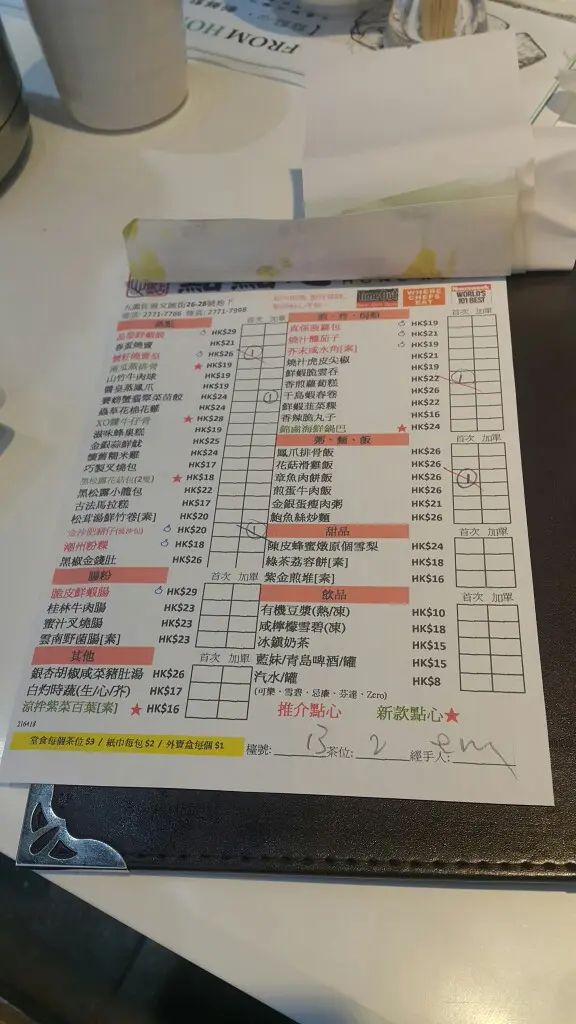 FROM HO
九龍佐敦文匯街26-28號地下
電話: 2771-7766 傳真: 2771-7998
TimeOut
WHERE CHEFS EAT
WORLD'S 101 BEST
蒸點 首次 加單
晶瑩鮮蝦餃 HK$29
春蛋燒賣 HK$21
蟹籽燒賣皇 HK$26 1
南瓜蒸排骨 ★ HK$19
山竹牛肉球 HK$19
醬皇蒸鳳爪 HK$19
賽螃蟹翡翠菜苗餃 HK$24 1
蟲草花棉花雞 HK$24
XO醬牛仔骨 ★ HK$28
滋味蜂巢糕 HK$19
金銀蒜鮮魷 HK$25
懷舊糯米雞 HK$24
巧製叉燒包 HK$17
黑松露花菇包(2隻) ★ HK$18
黑松露小籠包 HK$22
古法馬拉糕 HK$17
松茸湯鮮竹卷[素] HK$20
金沙肥豬仔(流沙包) HK$20 1
潮州粉粿 HK$18
黑椒金錢肚 HK$26
腸粉 首次 加單
脆皮鮮蝦腸 HK$29
桂林牛肉腸 HK$23
蜜汁叉燒腸 HK$23
雲南野菌腸[素] HK$23
其他 首次 加單
銀杏胡椒咸菜豬肚湯 HK$26
白灼時蔬(生/心/芥) HK$17
涼拌紫菜百葉[素] ★ HK$16
首次 加單
真係菠蘿包 HK$19
燒汁釀茄子 HK$21
芥末咸水角[素] HK$19
燒汁虎皮尖椒 HK$19
鮮蝦脆雲吞 HK$21
香煎蘿蔔糕 HK$19
千島蝦春卷 HK$22 1
鮮蝦韭菜粿 HK$22
香辣脆丸子 HK$16
錦鹵海鮮鍋巴 ★ HK$24
粥、麵、飯
鳳爪排骨飯 HK$26
花菇滑雞飯 HK$26
章魚肉餅飯 HK$26 1
煎蛋牛肉飯 HK$26
金銀蛋瘦肉粥 HK$21
鮑魚絲炒麵 HK$26
甜品 首次 加單
陳皮蜂蜜燉原個雪梨 HK$24
綠茶荔蓉餅[素] HK$18
紫金煎堆[素] HK$16
飲品 首次 加單
有機豆漿(熱/凍) HK$10
咸檸檬雪碧(凍) HK$18
冰鎮奶茶 HK$15
藍妹/青島啤酒/罐 HK$15
汽水/罐 HK$8
(可樂、雪碧、忌廉、芬達、Zero)
推介點心 新款點心★
堂食每個茶位 $3 / 紙巾每包 $2 / 外賣盒每個 $1
檯號: 13 茶位: 2 經手人: